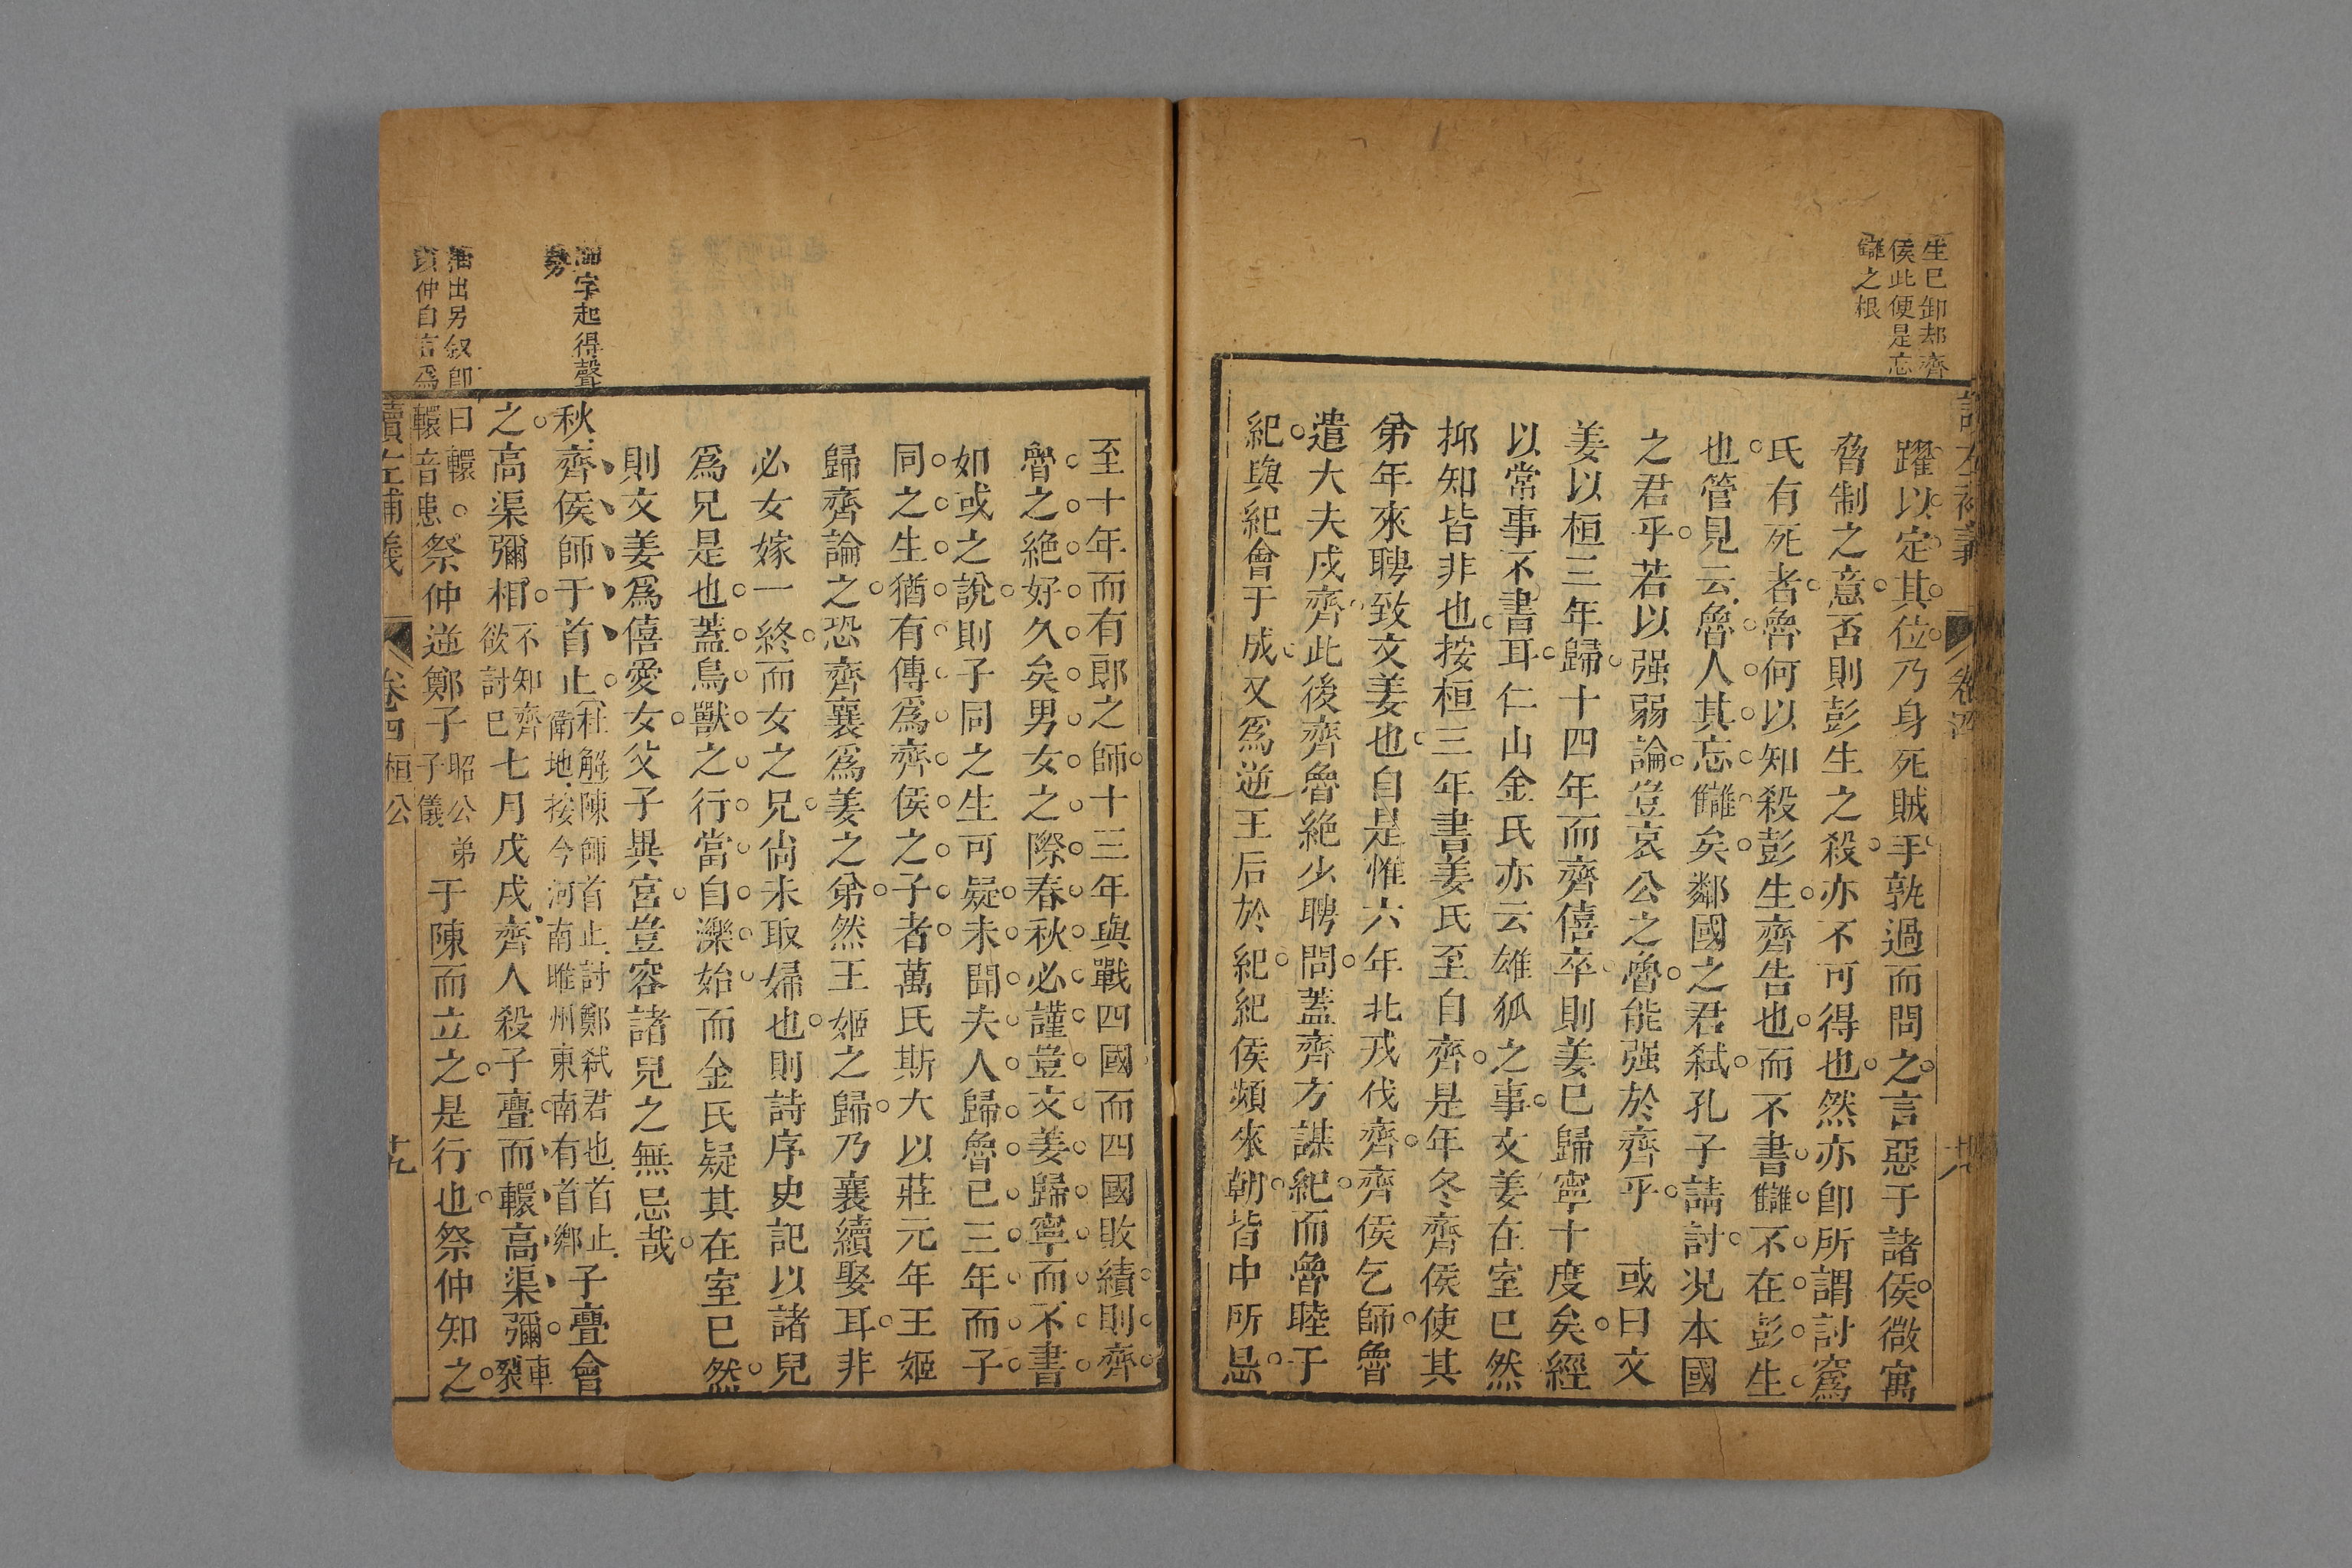 生已卸却齊
侯此便是忘
讎之根
躍以定其位乃身死賊手孰過而問之言惡于諸侯微寓
脅制之意否則彭生之殺亦不可得也然亦卽所謂討窩
氏有死者魯何以知殺彭生齊告也而不書讎不在彭生
也管見云魯人其忘讎矣鄰國之君弒孔子請討况本國
之君乎若以强弱論豈哀公之魯能强於齊乎　或曰文
姜以桓三年歸十四年而齊僖卒則姜已歸寧十度矣經
以常事不書耳仁山金氏亦云雄狐之事文姜在室已然
抑知皆非也按桓三年書姜氏至自齊是年冬齊侯使其
弟年來聘致文姜也自是惟六年北戎伐齊齊侯乞師魯
遣大夫戍齊此後齊魯絶少聘問蓋齊方謀紀而魯睦于
紀與紀會于成又爲逆王后於紀紀侯頻來朝皆中所忌
至十年而有郎之師十三年與戰四國而四國敗績則齊
魯之絶好久矣男女之際春秋必謹豈文姜歸寧而不書
如或之說則子同之生可疑未聞夫人歸魯已三年而子
同之生猶有傳爲齊侯之子者萬氏斯大以莊元年王姬
歸齊論之恐齊襄爲姜之弟然王姬之歸乃襄續娶耳非
必女嫁一終而女之兄尙未取婦也則詩序史記以諸兒
爲兄是也蓋鳥獸之行當自濼始而金氏疑其在室已然
則文姜爲僖愛女父子異宮豈容諸兒之無忌哉
字起得聲
勢
秋齊侯師于首止
杜解陳師首止討鄭弒君也首止
衛地按今河南睢州東南有首鄉
子亹會
之高渠彌相
不知齊
欲討已
七月戊戌齊人殺子亹而轘高渠彌
車
裂
出另叙卽
仲自言爲
曰轘
轘音患
祭仲逆鄭子
昭公弟
子儀
于陳而立之是行也祭仲知之
讀左補義
卷四
桓公
十九